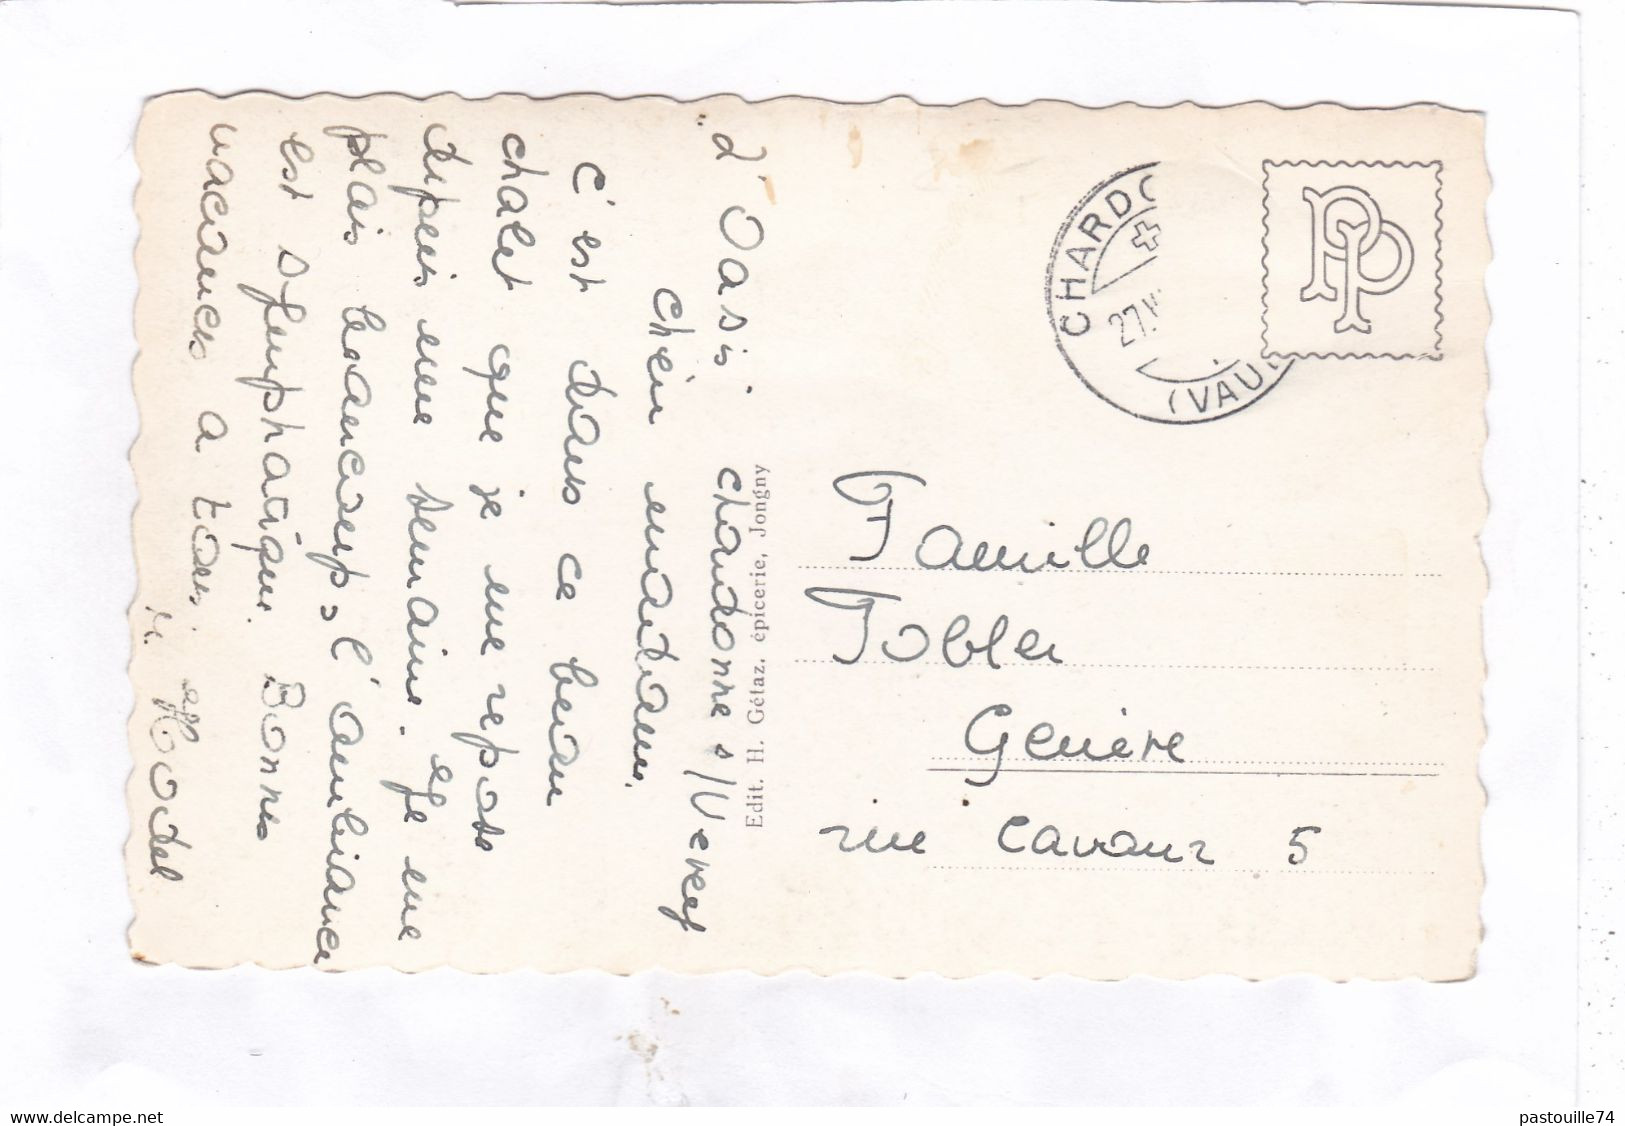 L'Oasis, chardonne s/Vevey
chèir madame.
C'est dans ce beau
chalet que je me repose
depuis une semaine. Je me
plais beaucoup, l'ambiance
est symphatique. Bonnes
vacances a tous
Hodel
Edit. H. Gétaz, épicerie, Jongny
CHARDO
27.VI
(VAUD
PP
Famille
Tobler
Genève
rue Cavour 5
www.delcampe.net
pastouille74